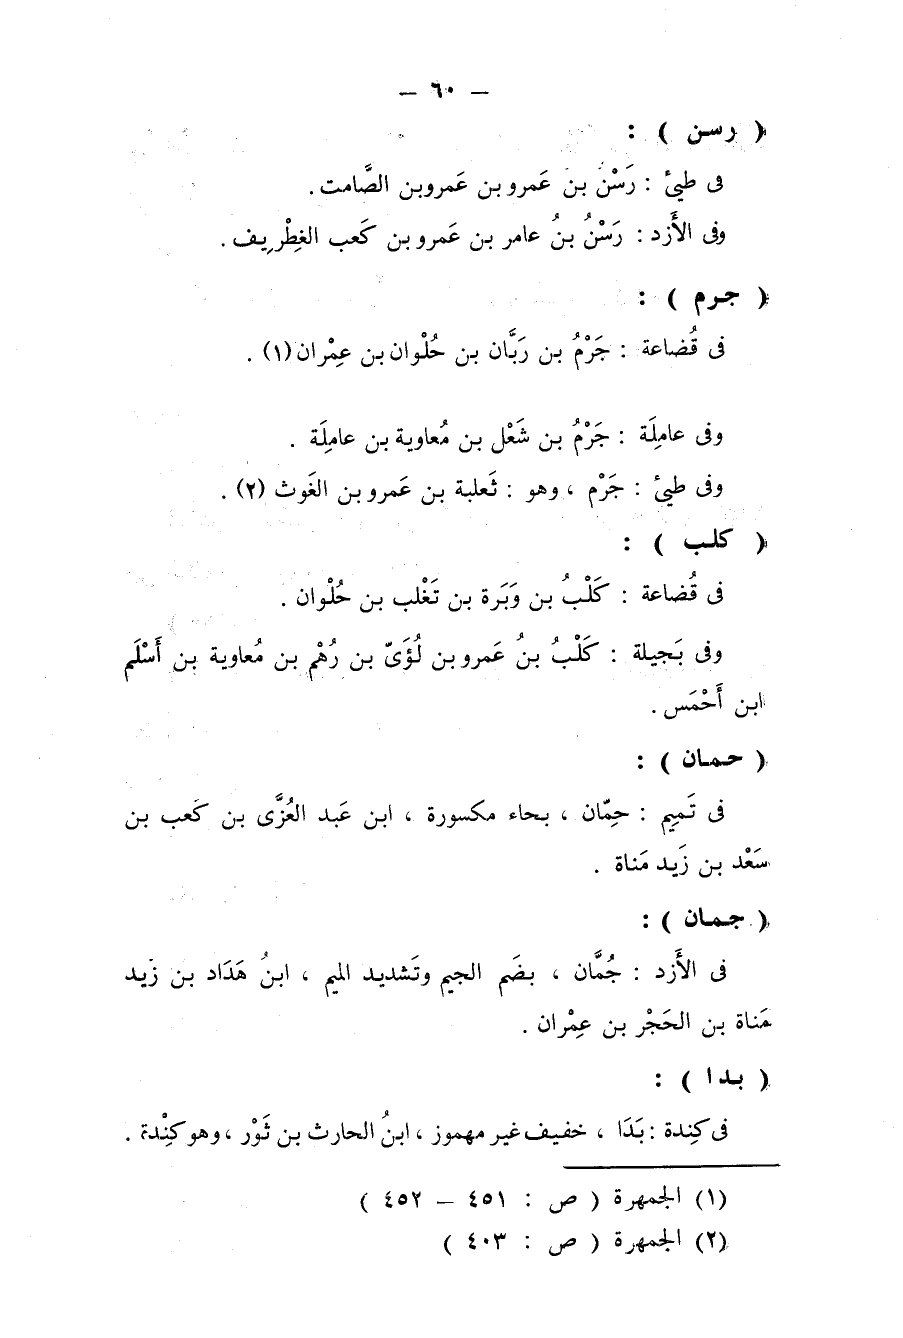 — ٦٠ —
( رسن ) :
فى طيئ : رَسْنُ بن عَمرو بن عَمرو بن الصَّامت .
وفى الأَزد : رَسْنُ بنُ عامر بن عَمرو بن كَعب الغِطْرِيف .
( جرم ) :
فى قُضاعة : جَرْمُ بن رَبَّان بن حُلْوان بن عِمْران (١) .
وفى عاملَة : جَرْمُ بن شَعْل بن مُعاوية بن عاملَة .
وفى طيئ : جَرْم ، وهو : ثَعلبة بن عَمرو بن الغَوث (٢) .
( كلب ) :
فى قُضاعة : كَلْبُ بن وَبَرة بن تَغْلب بن حُلْوان .
وفى بَجيلة : كَلْبُ بنُ عَمرو بن لُؤَىّ بن رُهْم بن مُعاوية بن أَسْلَم
ابن أَحْمَس .
( حمان ) :
فى تَميم : حِمّان ، بحاء مكسورة ، ابن عَبد العُزَّى بن كَعب بن
سَعْد بن زَيد مَناة .
( جمان ) :
فى الأَزد : جُمَّان ، بضَم الجيم وتَشديد الميم ، ابنُ هَدَاد بن زَيد
مَناة بن الحَجْر بن عِمْران .
( بدا ) :
فى كِندة : بَدَا ، خفيف غير مهموز ، ابنُ الحارث بن ثَوْر ، وهو كِنْدة .
(١) الجمهرة ( ص : ٤٥١ – ٤٥٢ )
(٢) الجمهرة ( ص : ٤٠٣ )